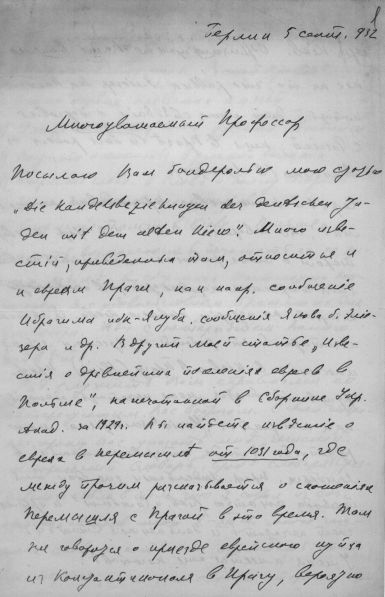 1
Берлин 5 сент. 932
Многоуважаемый Профессор
Посылаю Вам бандеролью мою статью
„Die Handelsbeziehungen der deutschen Ju-
den mit dem alten Kiew". Много изве-
стий, приведенных там, относится и
к евреям Праги, как напр. сообщение
Ибрагима ибн-Якуба, сообщения Якова б. Элие-
зера и др. В другой моей статье, „Изве-
стия о древнейших поселениях евреев в
Польше", напечатанной в Сборнике Укр.
Акад. за 1929г. Вы найдете известие о
евреях в Перемышле от 1031 года, где
между прочим рассказывается о сношениях
Перемышля с Прагой в это время. Там
же говорится о приезде еврейского купца
из Константинополя в Прагу, вероятно